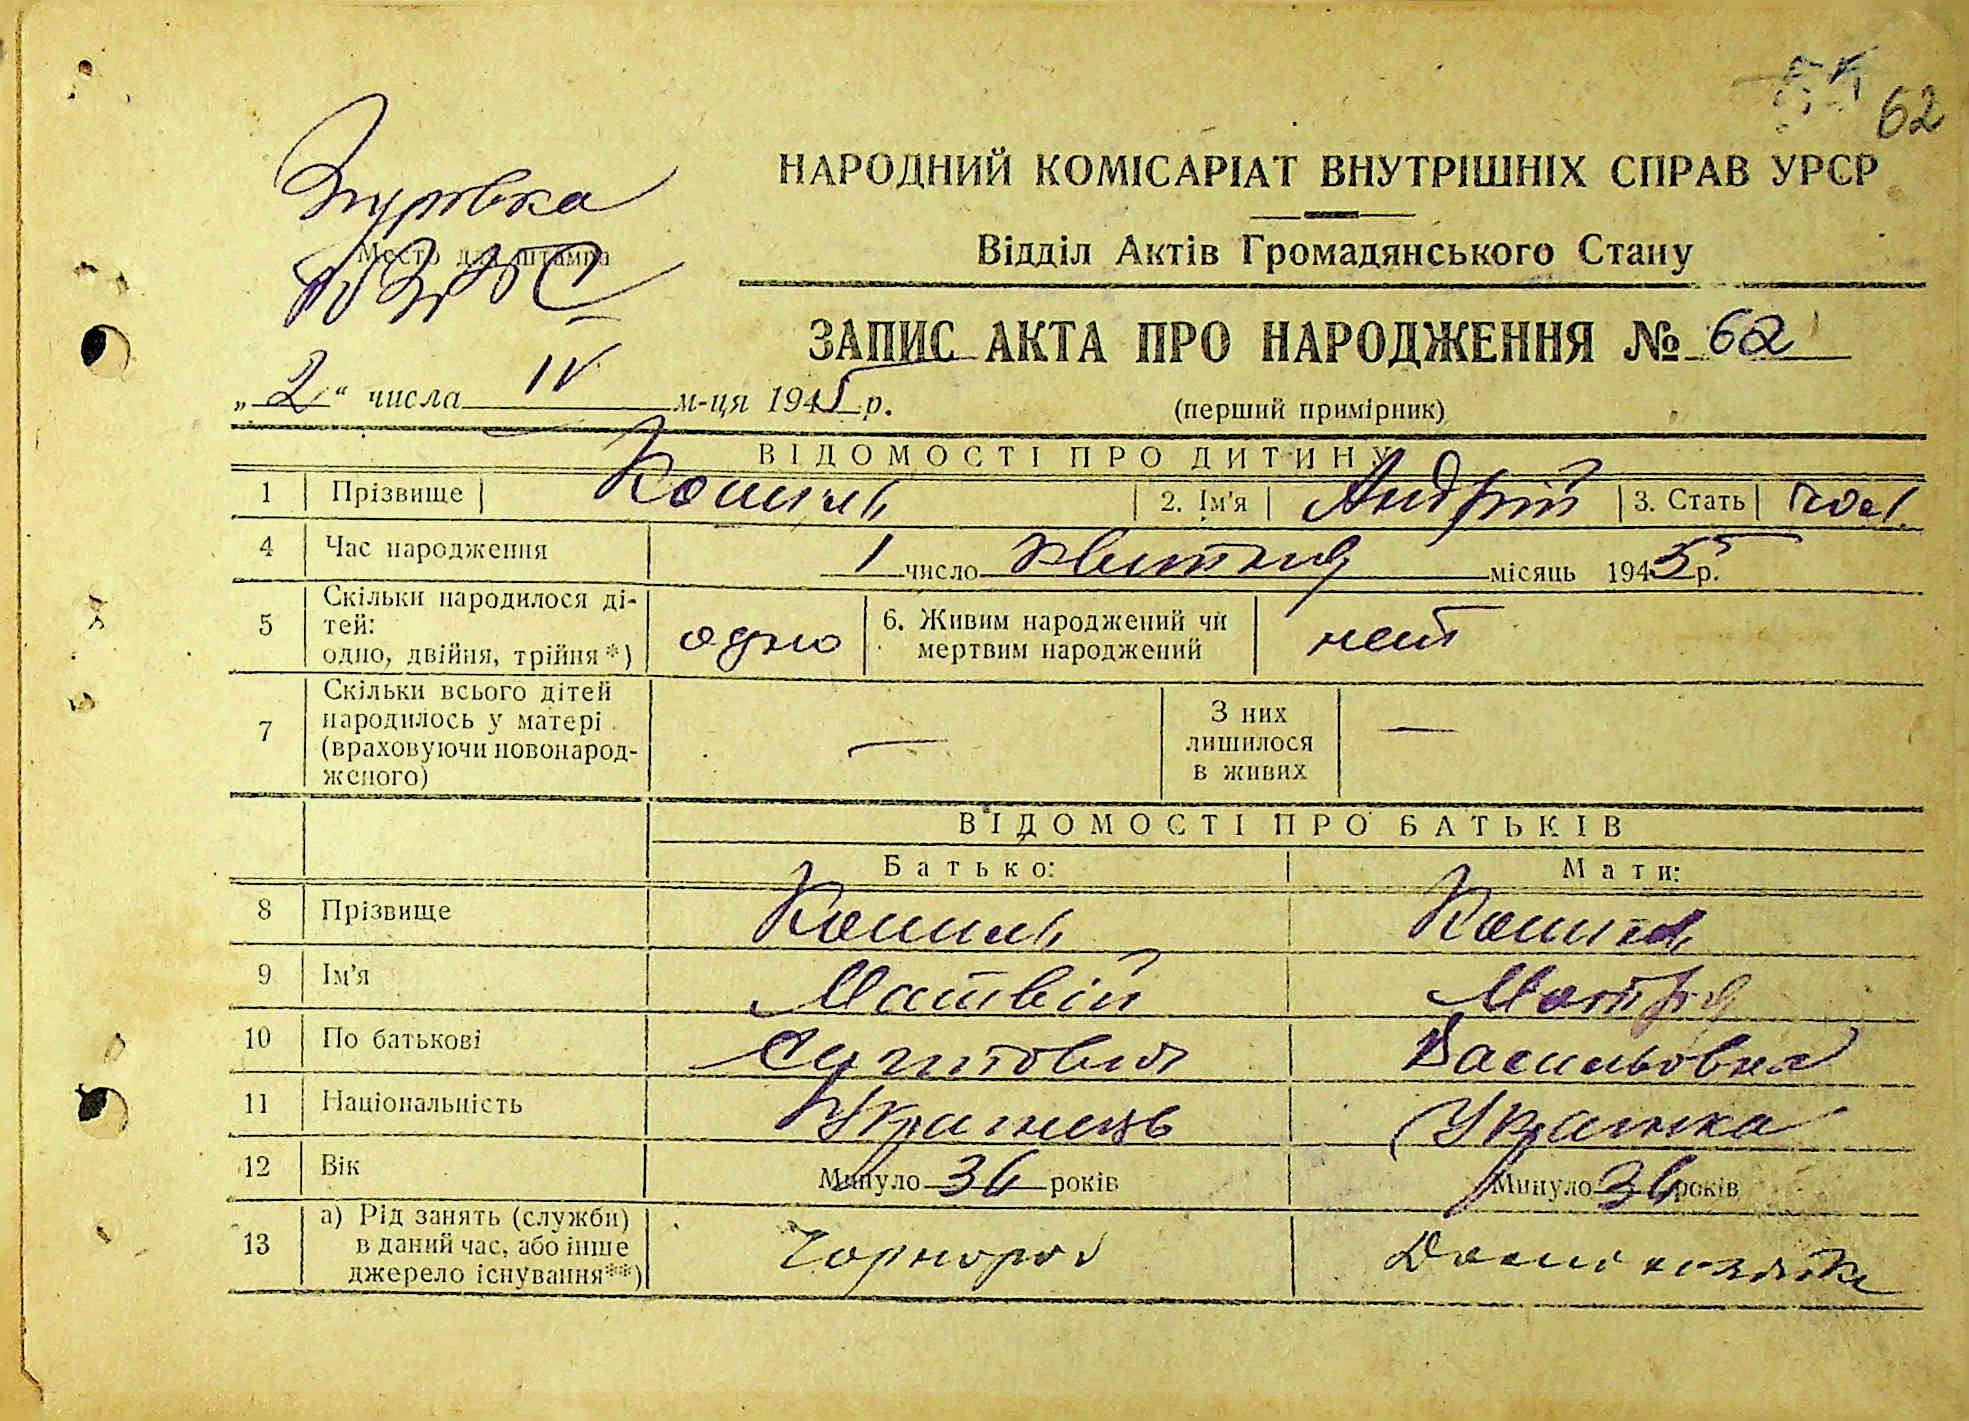 62
НАРОДНИЙ КОМІСАРІАТ ВНУТРІШНІХ СПРАВ УРСР
Згурівка
Відділ Актів Громадянського Стану
Место для штампа
ЗАГС
ЗАПИС АКТА ПРО НАРОДЖЕННЯ № 62
„2“ числа IV м-ця 1945 р.
(перший примірник)
ВІДОМОСТІ ПРО ДИТИНУ
1 Прізвище Кошиль 2. Ім'я Андрій 3. Стать
4 Час народження 1 число квітня місяць 1945 р.
5 Скільки народилося ді-
тей:
одно, двійня, трійня*) одно
6. Живим народжений чи
мертвим народжений
7 Скільки всього дітей
народилось у матері
(враховуючи новонарод-
женого) —
З них
лишилося
в живих —
ВІДОМОСТІ ПРО БАТЬКІВ
Батько: Мати:
8 Прізвище Кошиль Кошиль
9 Ім'я Матвій Мотря
10 По батькові Васильовна
11 Національність Українець Українка
12 Вік Минуло 36 років Минуло 36 років
13 а) Рід занять (служби)
в даний час, або інше
джерело існування**) Чорнороб